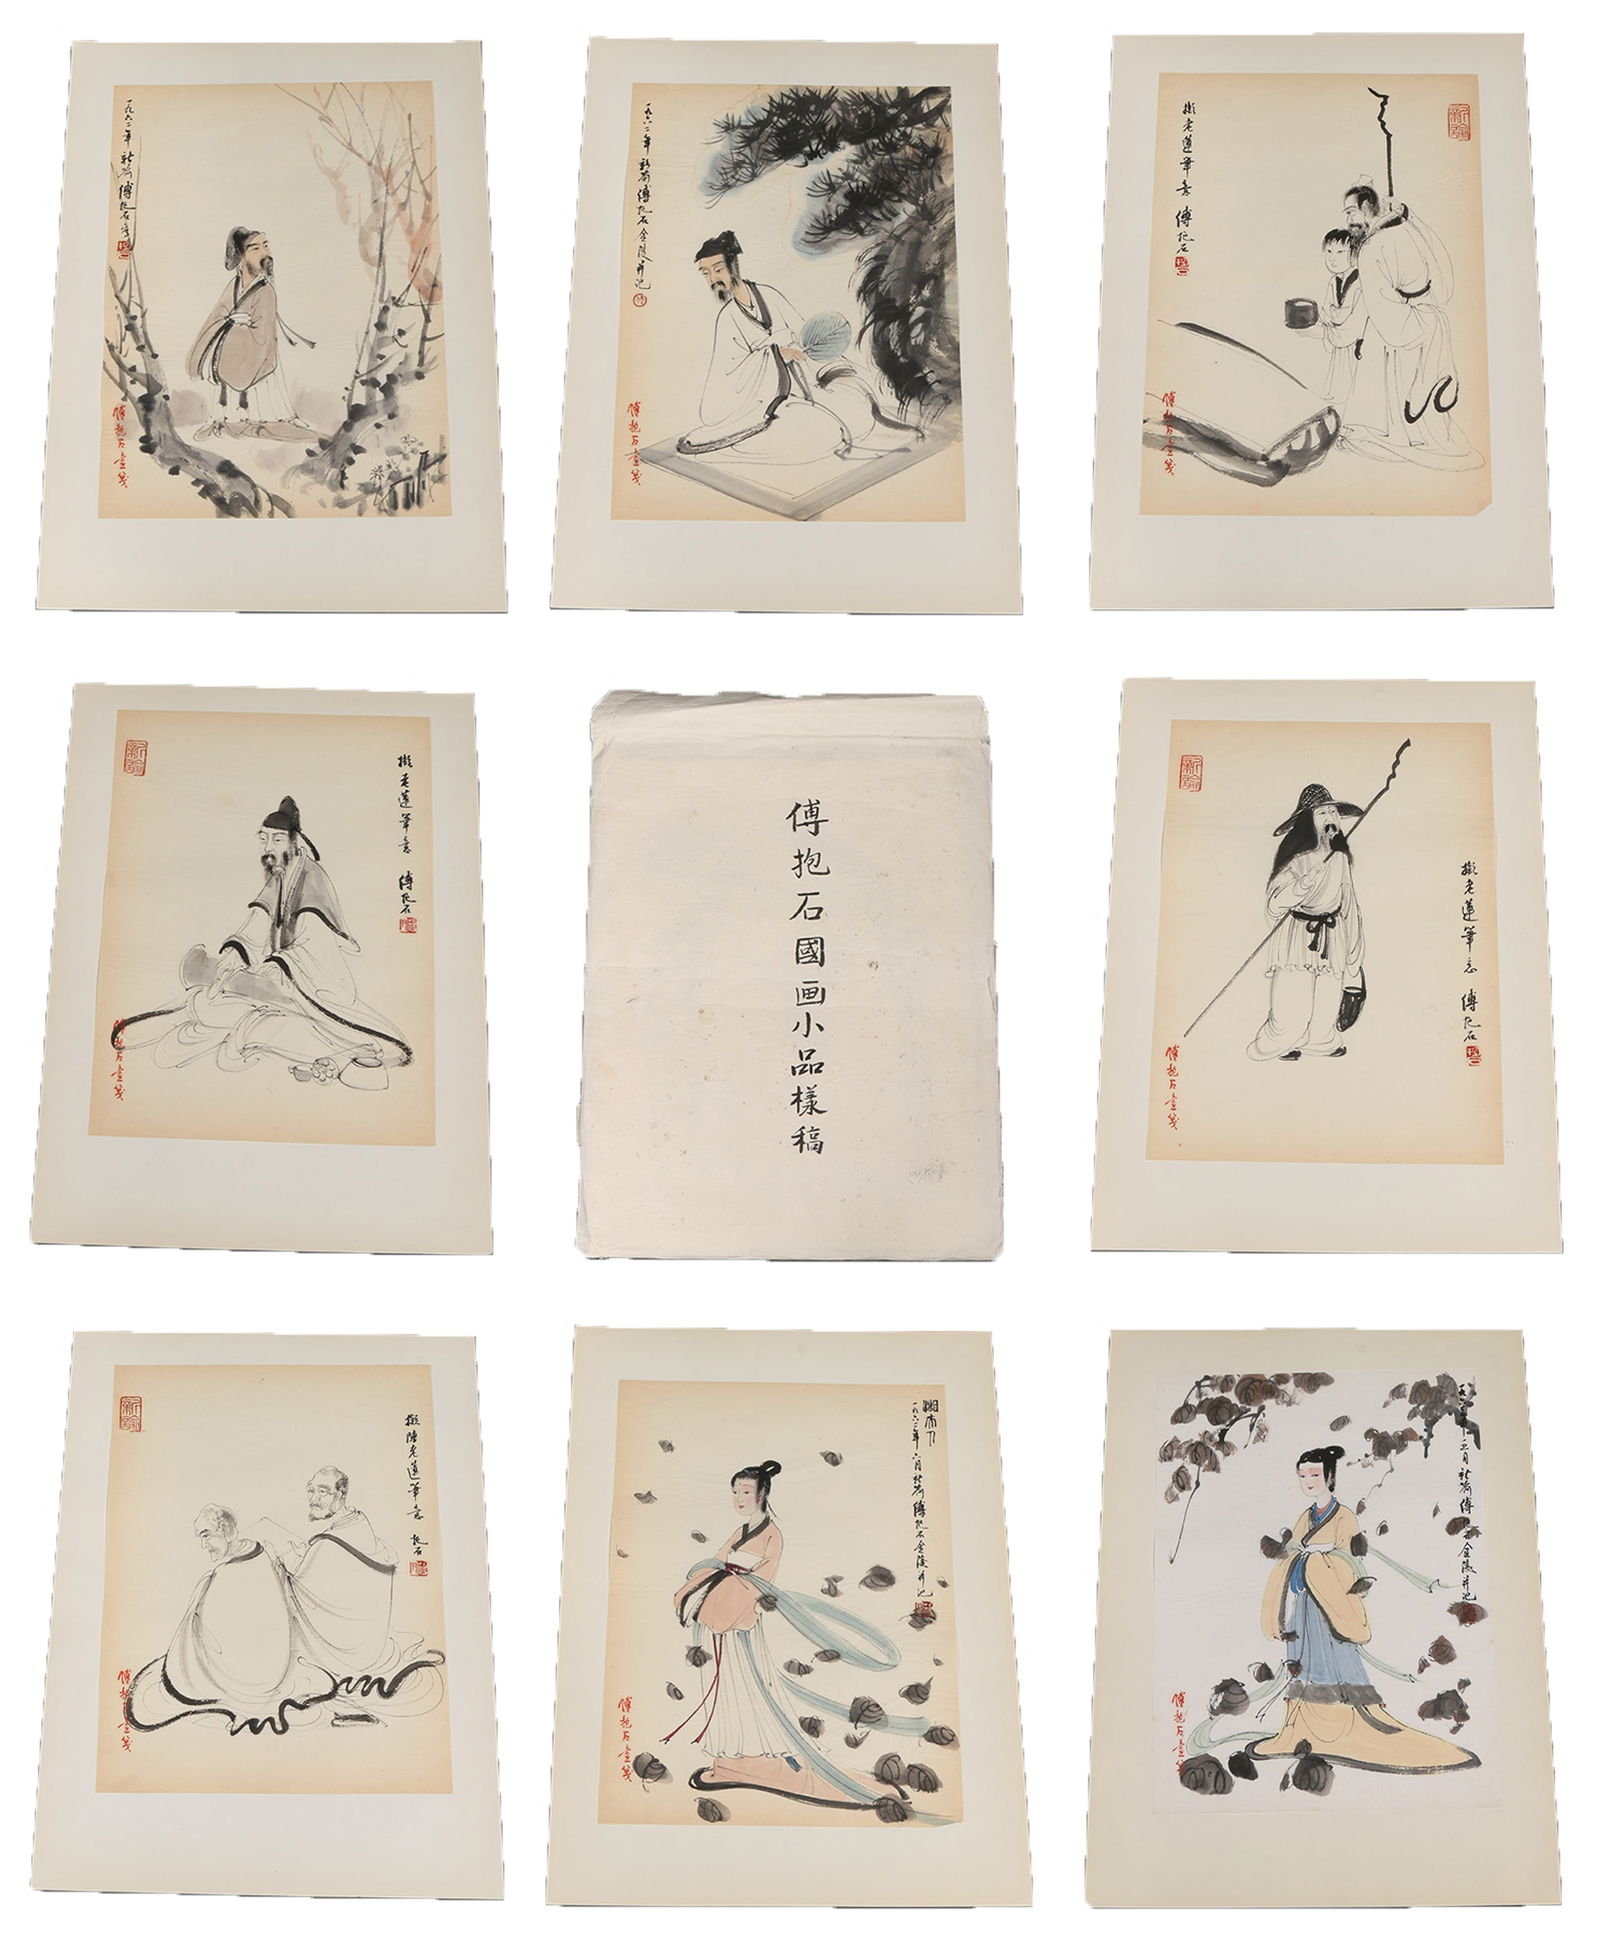 一九六二年 新喻傅抱石写
傅抱石画笺
一九六二年 新喻傅抱石金陵并记
傅抱石画笺
擬老蓮筆意 傅抱石
新喻
傅抱石画笺
新喻
擬老蓮筆意 傅抱石
傅抱石画笺
傅抱石國画小品樣稿
新喻
擬老蓮筆意 傅抱石
傅抱石画笺
新喻
擬陳老蓮筆意 抱石
傅抱石画笺
湘夫人
一九六二年六月新喻傅抱石金陵并记
傅抱石画笺
新喻傅抱石金陵并记
傅抱石画笺